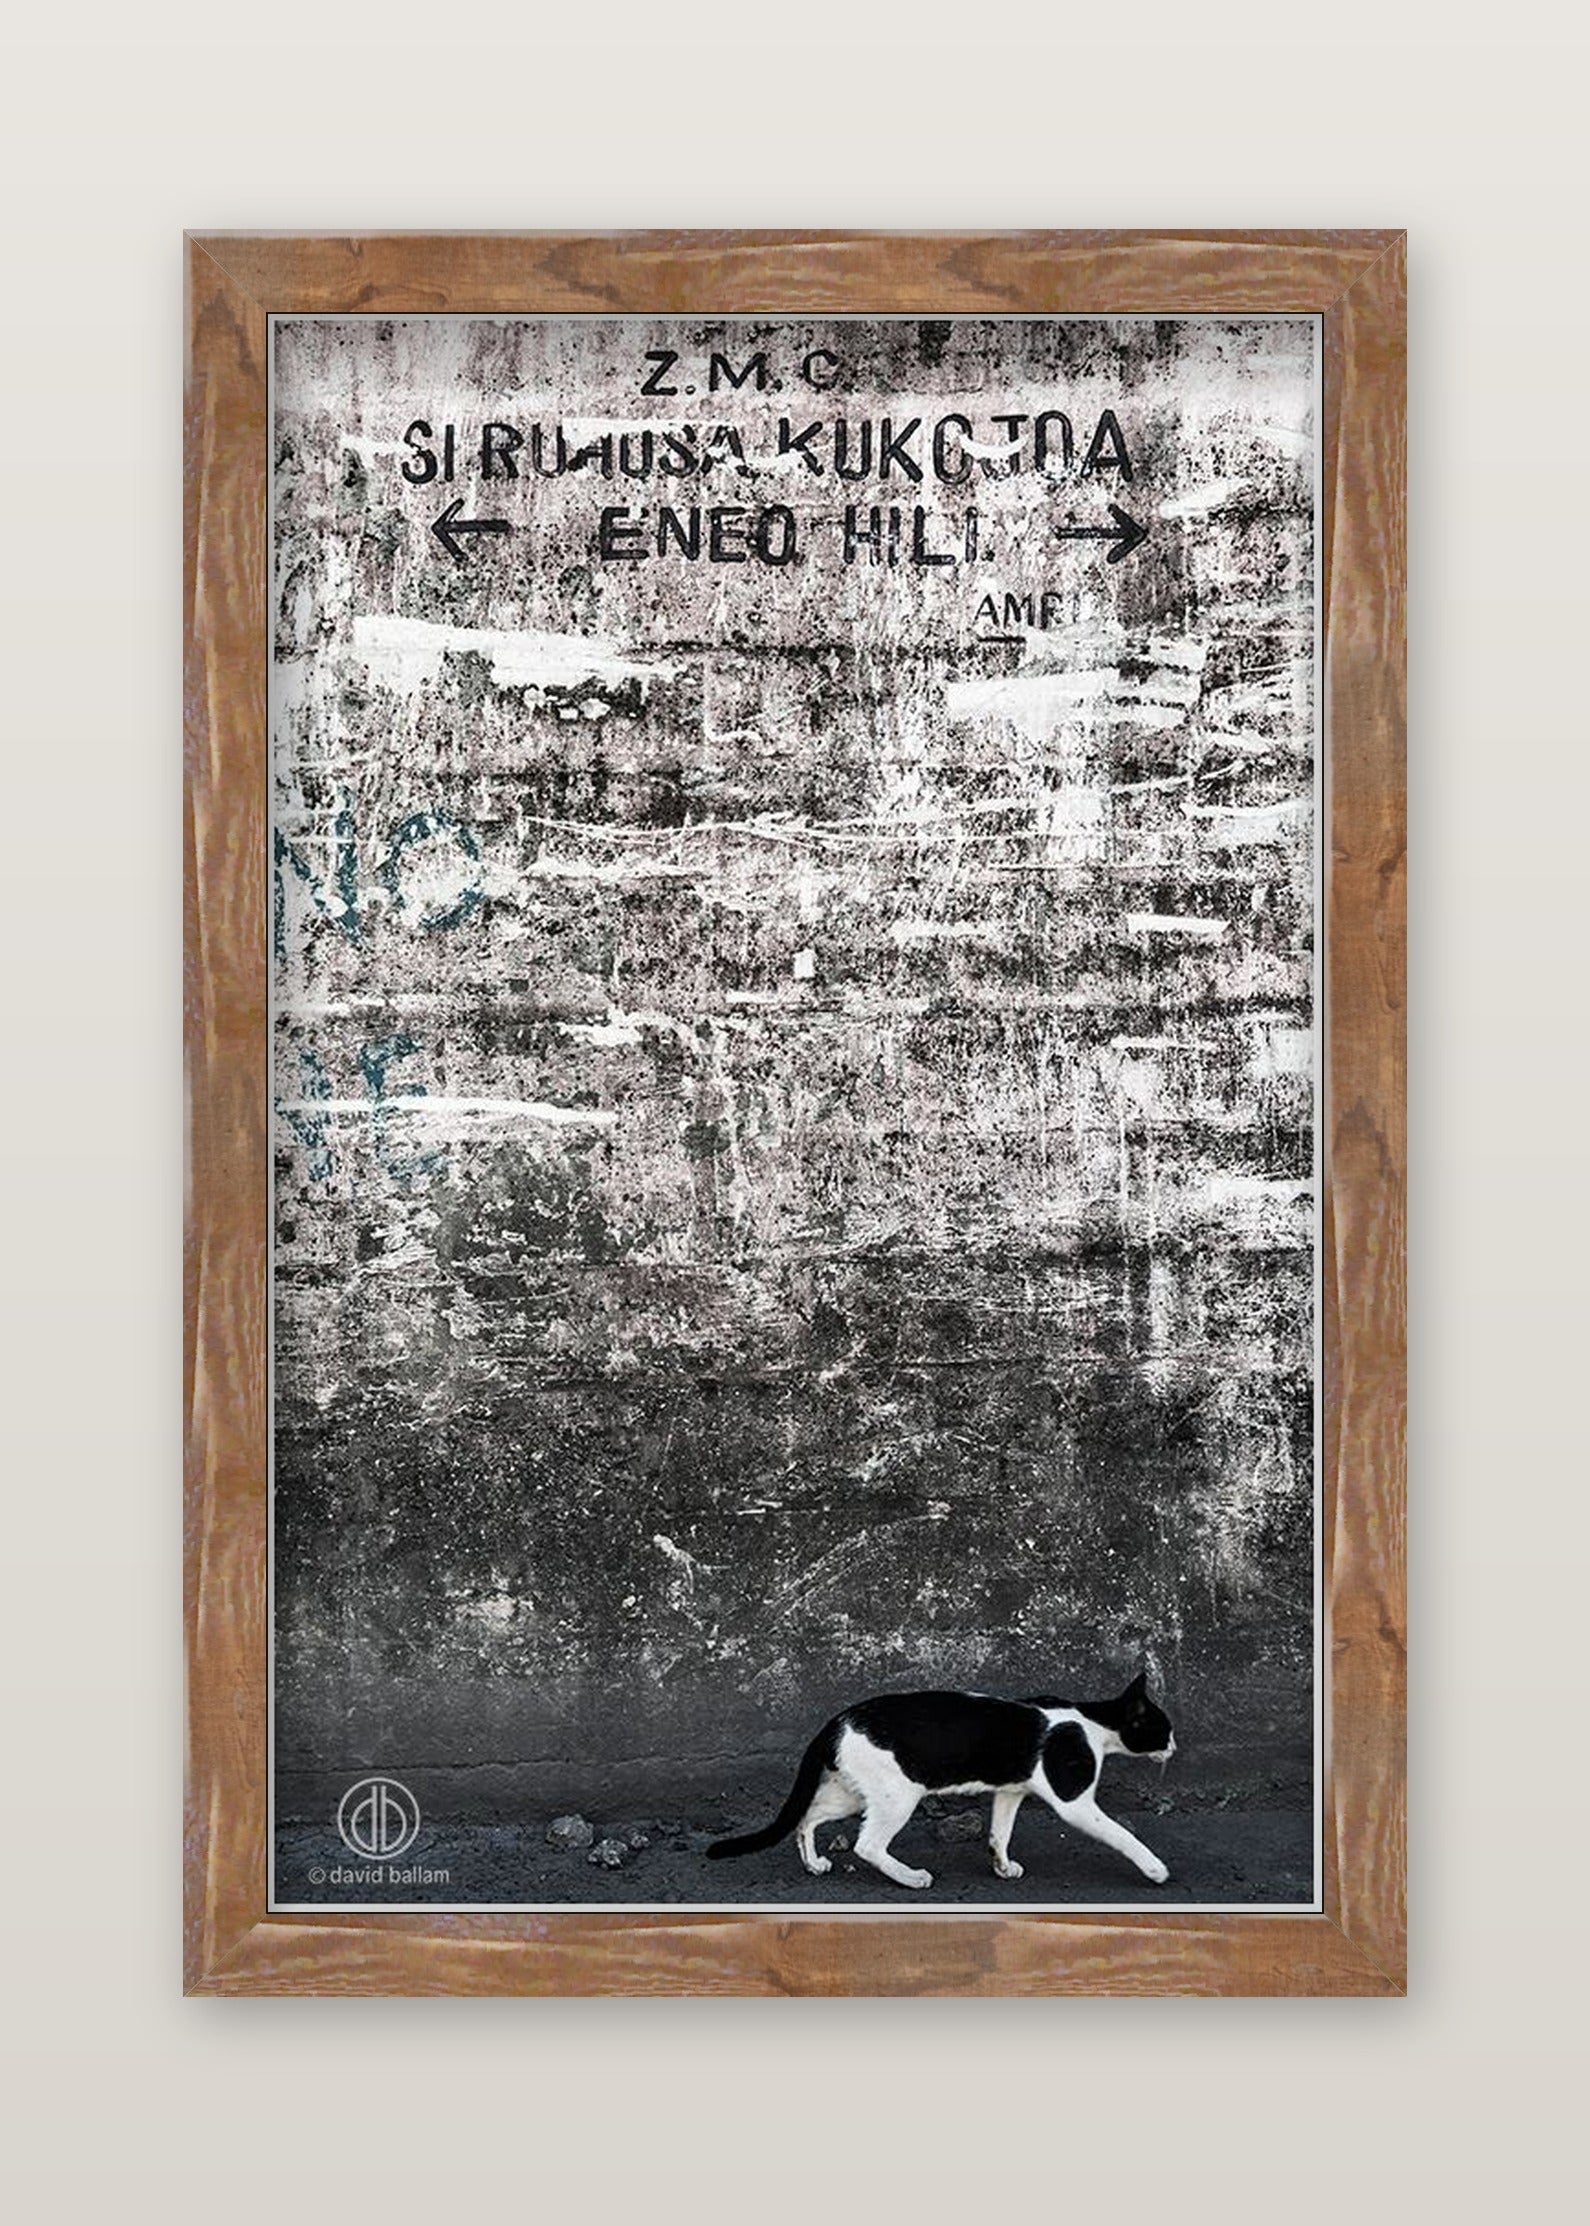 Z.M.C.
SI RUHUSA KUKOJOA
← ENEO HILI. →
AMRI
NO
db
© david ballam